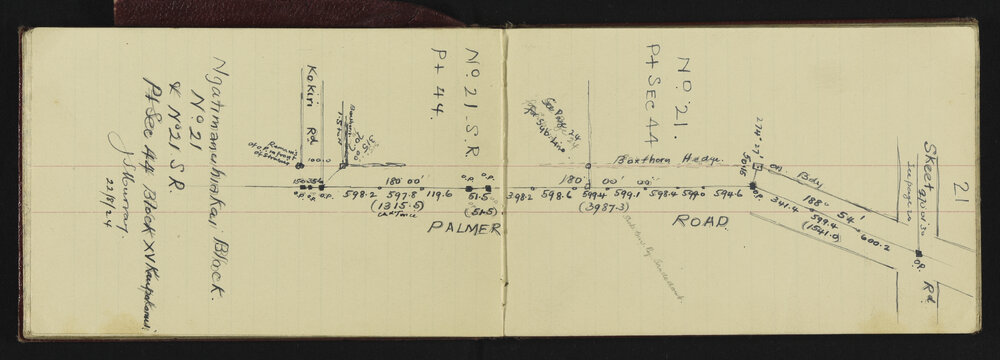 21
Ngatimanuhiakai Block.
No. 21
& No 21 S R
Pt Sec 44 Block XV Kaupokonui
J. S. Murray
22/8/24
Kokiri Rd
No. 21. S.R
Pt 44.
No. 21.
Pt SEC 44
See page 24
Boxthorn Hedge.
on Bdy
274° 27'
Skeet
Rd
O.P.
O.P.
O.P.
O.P.
O.P.
180° 00'
598.2 597.8 119.6
(1315.5)
51.5
(51.5)
PALMER
398.2 598.6 599.4 599.1 598.4 599.0 594.6
180° 00' 00"
(3987.3)
ROAD.
341.4 188° 54' 599.4 600.2
(1541.0)